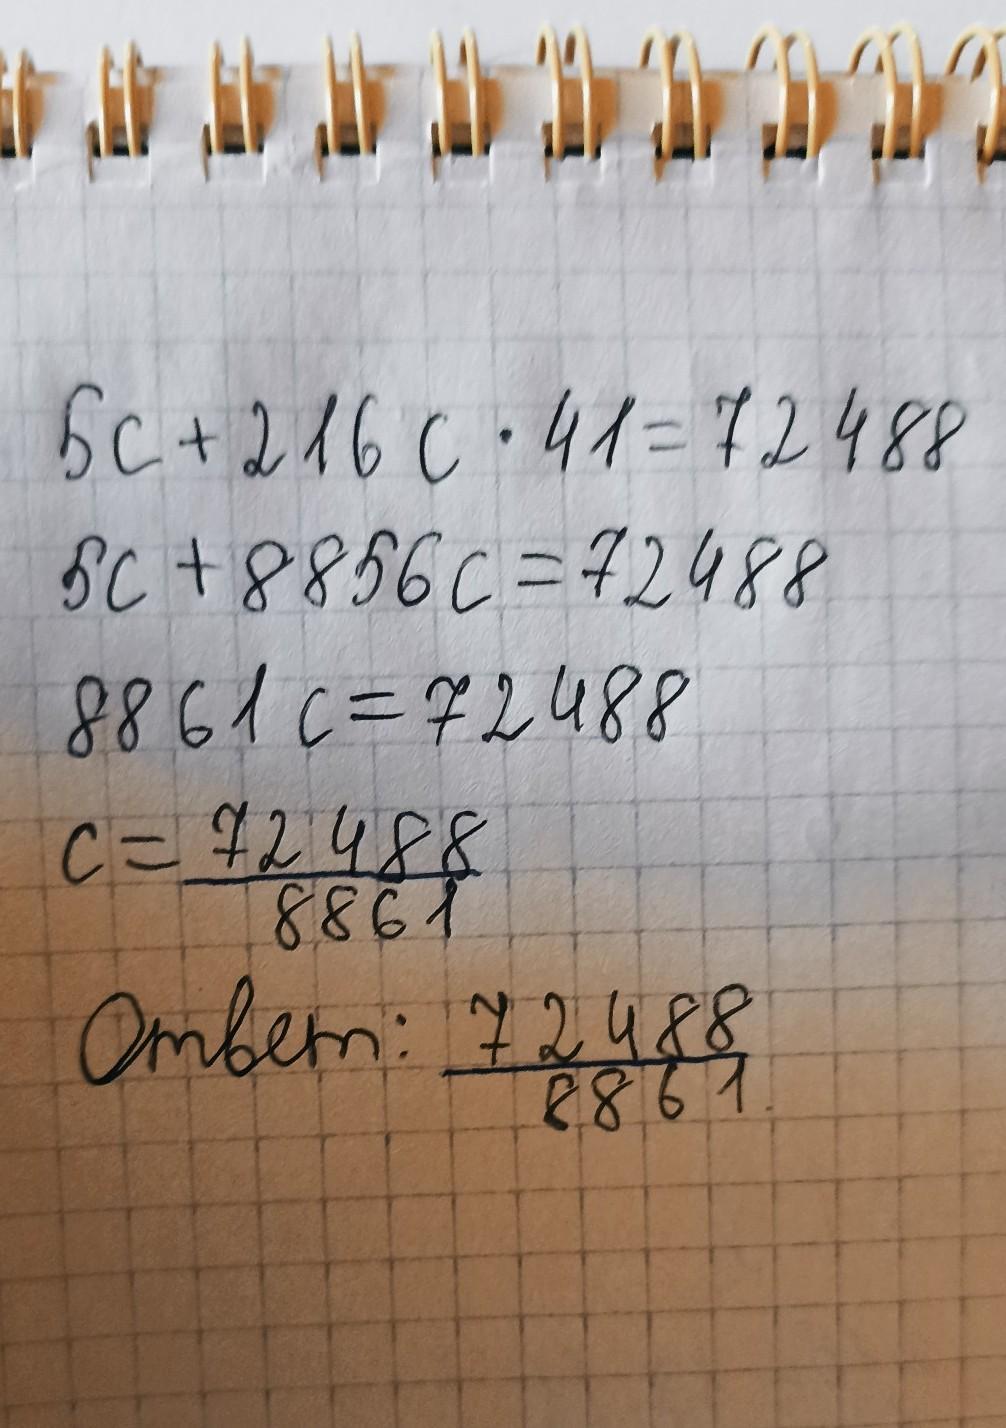 5с + 216с · 41 = 72488
5с + 8856с = 72488
8861с = 72488
с = 72488
8861
Ответ: 72488
8861.